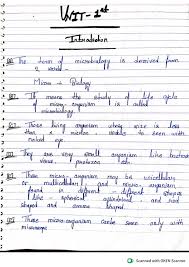 UNIT - 1st
Introduction
The term of microbiology is derived from
2 words
Micro + Biology
It means the study of life cycle
of micro organism is called
microbiology.
Those living organism whose size is less
than
with
naked eye
They are very small organism like bacteria
virus,
These micro-organism may be unicellular
or multicellular and micro-organism
found in different different
like - spherical, and rod
shaped and comma shaped.
These micro-organism can be seen only with
microscope
Scanned with OKEN Scanner